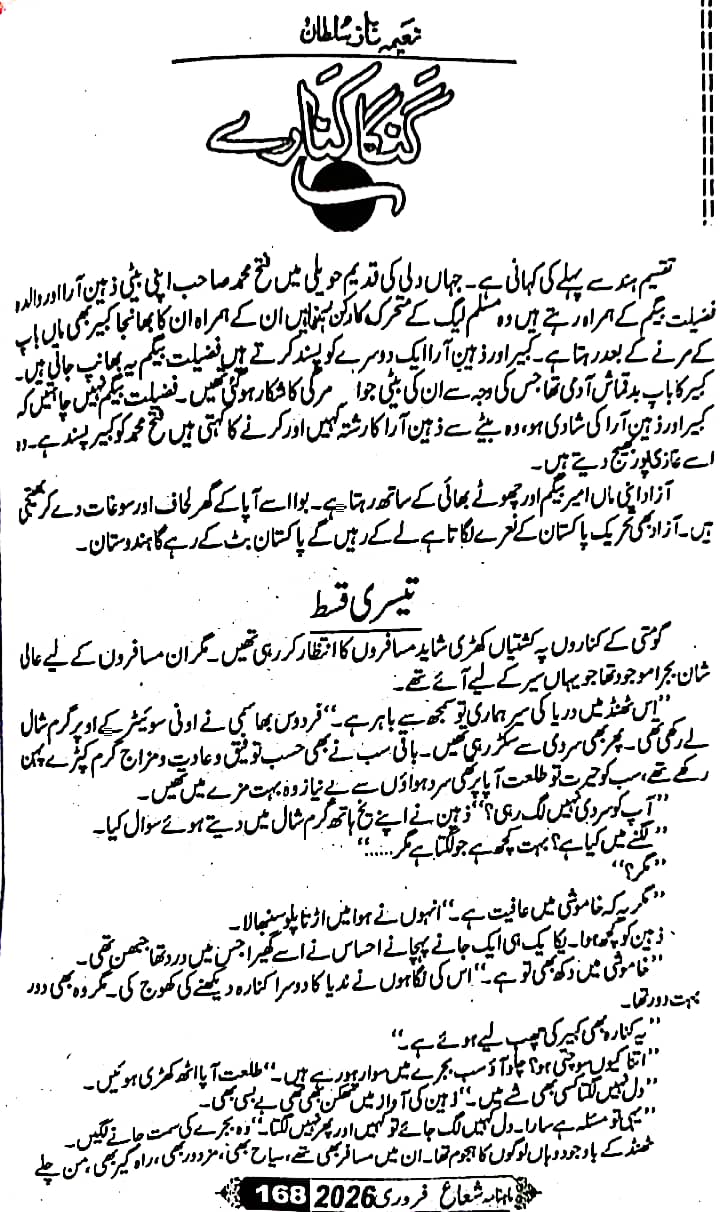 نعیمہ ناز سلطان
گنگا کنارے
تقسیم ہند سے پہلے کی کہانی ہے۔ جہاں دلی کی قدیم حویلی میں فتح محمد صاحب اپنی بیٹی ذہین آرا اور والدہ
فضیلت بیگم کے ہمراہ رہتے ہیں وہ مسلم لیگ کے متحرک کارکن ہیں ان کے ہمراہ ان کا بھانجا کبیر بھی ماں باپ
کے مرنے کے بعد رہتا ہے۔ کبیر اور ذہین آرا ایک دوسرے کو پسند کرتے ہیں فضیلت بیگم یہ بھانپ جاتی ہیں۔
کبیر کا باپ بدقماش آدمی تھا جس کی وجہ سے ان کی بیٹی جوا مرگی کا شکار ہو گئی تھیں۔ فضیلت بیگم نہیں چاہتیں کہ
کبیر اور ذہین آرا کی شادی ہو، وہ بیٹے سے ذہین آرا کا رشتہ کہیں اور کرنے کا کہتی ہیں فتح محمد کو کبیر پسند ہے۔ وہ
اسے غازی پور بھیج دیتے ہیں۔
آزاد اپنی ماں امیر بیگم اور چھوٹے بھائی کے ساتھ رہتا ہے۔ بوا اسے آپا کے گھر لحاف اور سوغات دے کر بھیجتی
ہیں۔ آزاد بھی تحریک پاکستان کے نعرے لگاتا ہے لے کے رہیں گے پاکستان بٹ کے رہے گا ہندوستان۔
تیسری قسط
گومتی کے کناروں پہ کشتیاں کھڑی شاید مسافروں کا انتظار کر رہی تھیں۔ مگر ان مسافروں کے لیے عالی
شان بجرا موجود تھا جو یہاں سیر کے لیے آئے تھے۔
"اس ٹھنڈ میں دریا کی سیر ہماری تو سمجھ سے باہر ہے۔" فردوس بھابھی نے اونی سوئیٹر کے اوپر گرم شال
لے رکھی تھی۔ پھر بھی سردی سے سکڑ رہی تھیں۔ باقی سب نے بھی حسب توفیق و عادت و مزاج گرم کپڑے پہن
رکھے تھے، سب کو حیرت تو طلعت آپا پر تھی سرد ہواؤں سے بے نیاز وہ بہت مزے میں تھیں۔
"آپ کو سردی نہیں لگ رہی؟" ذہین نے اپنے یخ ہاتھ گرم شال میں دیتے ہوئے سوال کیا۔
"لگنے میں کیا ہے؟ بہت کچھ ہے جو لگتا ہے مگر......"
"مگر؟"
"مگر یہ کہ خاموشی میں عافیت ہے۔" انہوں نے ہوا میں اڑتا پلو سنبھالا۔
ذہین کو کچھ ہوا۔ یکایک ہی ایک جانے پہچانے احساس نے اسے گھیرا جس میں درد تھا چبھن تھی۔
"خاموشی میں دکھ بھی تو ہے۔" اس کی نگاہوں نے ندیا کا دوسرا کنارہ دیکھنے کی کھوج کی۔ مگر وہ بھی دور
بہت دور تھا۔
"یہ کنارہ بھی کبیر کی چپ لیے ہوئے ہے۔"
"اتنا کیوں سوچتی ہو؟ چلو آؤ سب بجرے میں سوار ہو رہے ہیں۔" طلعت آپا اٹھ کھڑی ہوئیں۔
"دل نہیں لگتا کسی بھی شے میں۔" ذہین کی آواز میں تھکن بھی تھی بے بسی بھی۔
"یہی تو مسئلہ ہے سارا۔ دل نہیں لگ جائے تو کہیں اور پھر نہیں لگتا۔" وہ بجرے کی سمت جانے لگیں۔
ٹھنڈ کے باوجود وہاں لوگوں کا ہجوم تھا۔ ان میں مسافر بھی تھے، سیاح بھی، مزدور بھی، راہ گیر بھی، من چلے
ماہنامہ شعاع فروری 2026 168